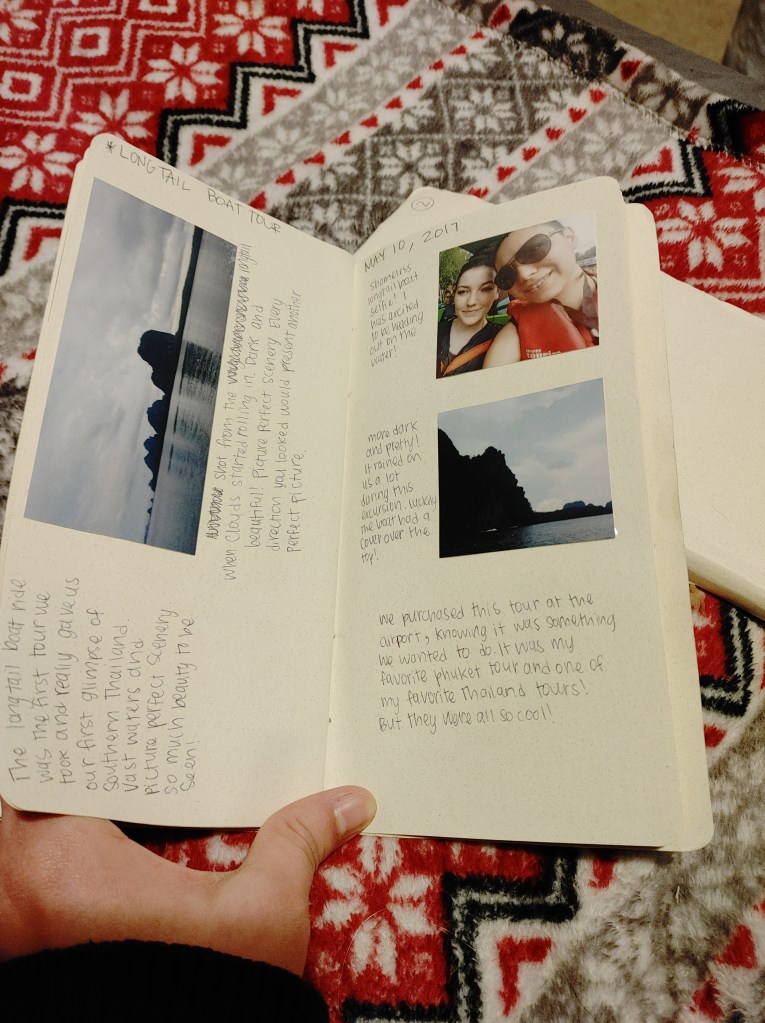 *LONGTAIL BOAT TOUR
shot from the longtail
when clouds started rolling in. Dark and
beautiful! Picture perfect scenery. Every
direction you looked would present another
perfect picture.
The longtail boat ride
was the first tour we
took and really gave us
our first glimpse of
Southern Thailand.
Vast waters and
picture perfect scenery
so much beauty to be
seen!
2
MAY 10, 2017
shameless
longtail boat
selfie! I
was excited
to be heading
out on the
water!
more dark
and pretty!
It rained on
us a lot
during this
excursion. Luckily
the boat had a
cover over the
top!
we purchased this tour at the
airport, knowing it was something
we wanted to do. It was my
favorite phuket tour and one of
my favorite Thailand tours!
But they were all so cool!